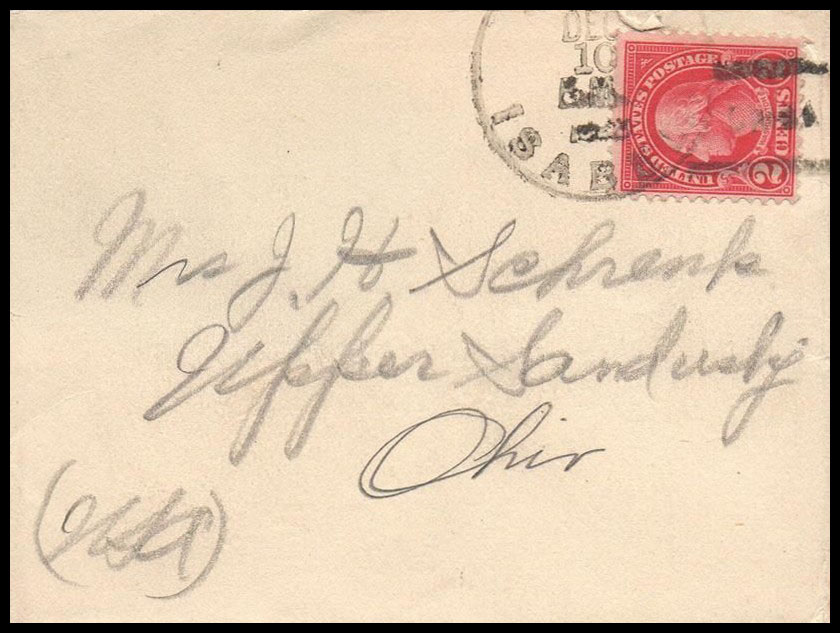 DEC
10
ISAB
UNITED STATES POSTAGE
2
Mrs J. H Schrenk
Upper Sandusky
Ohio
(USA)